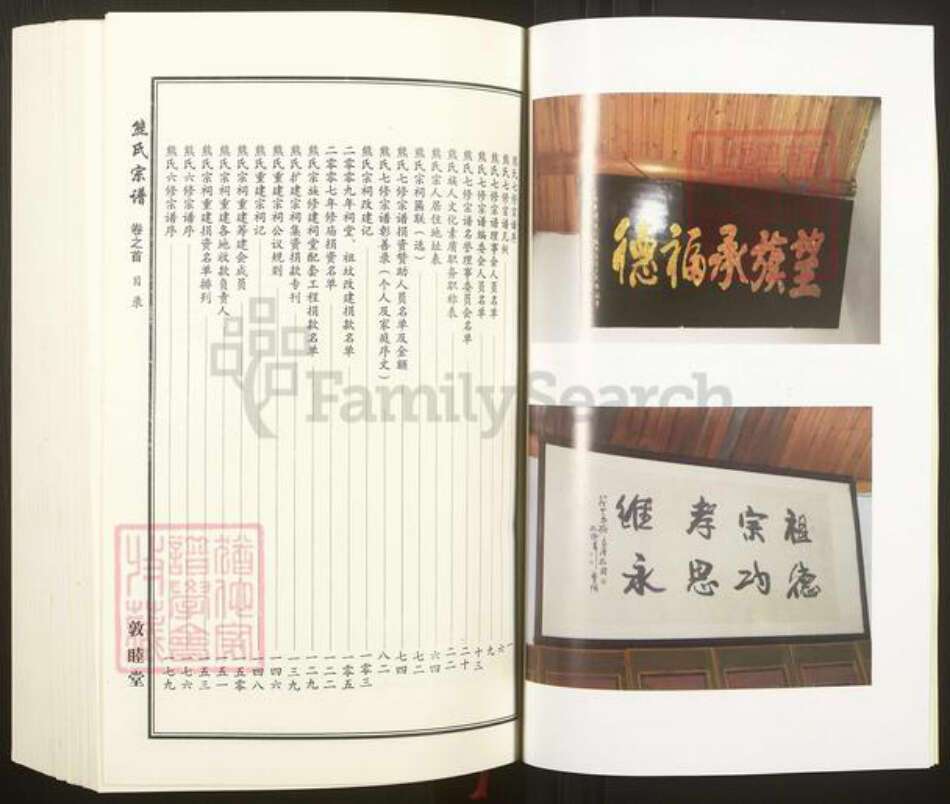 望族承福德
祖德
宗功
孝思
維永
熊氏七修宗谱序 一
熊氏七修宗谱凡例 六
熊氏七修宗谱理事会人员名单 九
熊氏七修宗谱编委会人员名单 十三
熊氏七修宗谱名誉理事委员会名单 二十
熊氏族人文化素质职务职称表 二二
熊氏宗人居住地址表 六四
熊氏宗祠匾联（选） 七二
熊氏七修宗谱捐资赞助人员名单及金额 七四
熊氏七修宗谱彰善录（个人及家庭序文） 八二
熊氏宗祠改建记 一零三
二零零九年祠堂、祖坟改建捐款名单 一零五
二零零七年修庙捐资名单 一二二
熊氏宗族修建祠堂配套工程捐款名单 一二九
熊氏扩建宗祠集资捐款专刊 一三九
熊氏重建宗祠公议规则 一四六
熊氏重建宗祠记 一四八
熊氏宗祠重建筹建会成员 一五零
熊氏宗祠重建各地收款负责人 一五一
熊氏宗祠重建捐资名单排列 一五三
熊氏六修宗谱序 一七六
熊氏六修宗谱序 一七九
熊氏宗谱 卷之首 目录 敦睦堂
FamilySearch